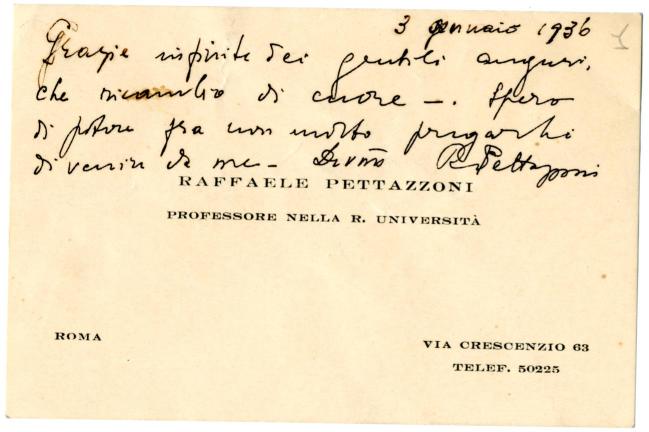 3 gennaio 1936
Grazie infinite dei gentili auguri,
che ricambio di cuore —. Spero
di potere fra non molto pregarLa
di venire da me — Dev.mo R. Pettazzoni
RAFFAELE PETTAZZONI
PROFESSORE NELLA R. UNIVERSITÀ
ROMA
VIA CRESCENZIO 63
TELEF. 50225